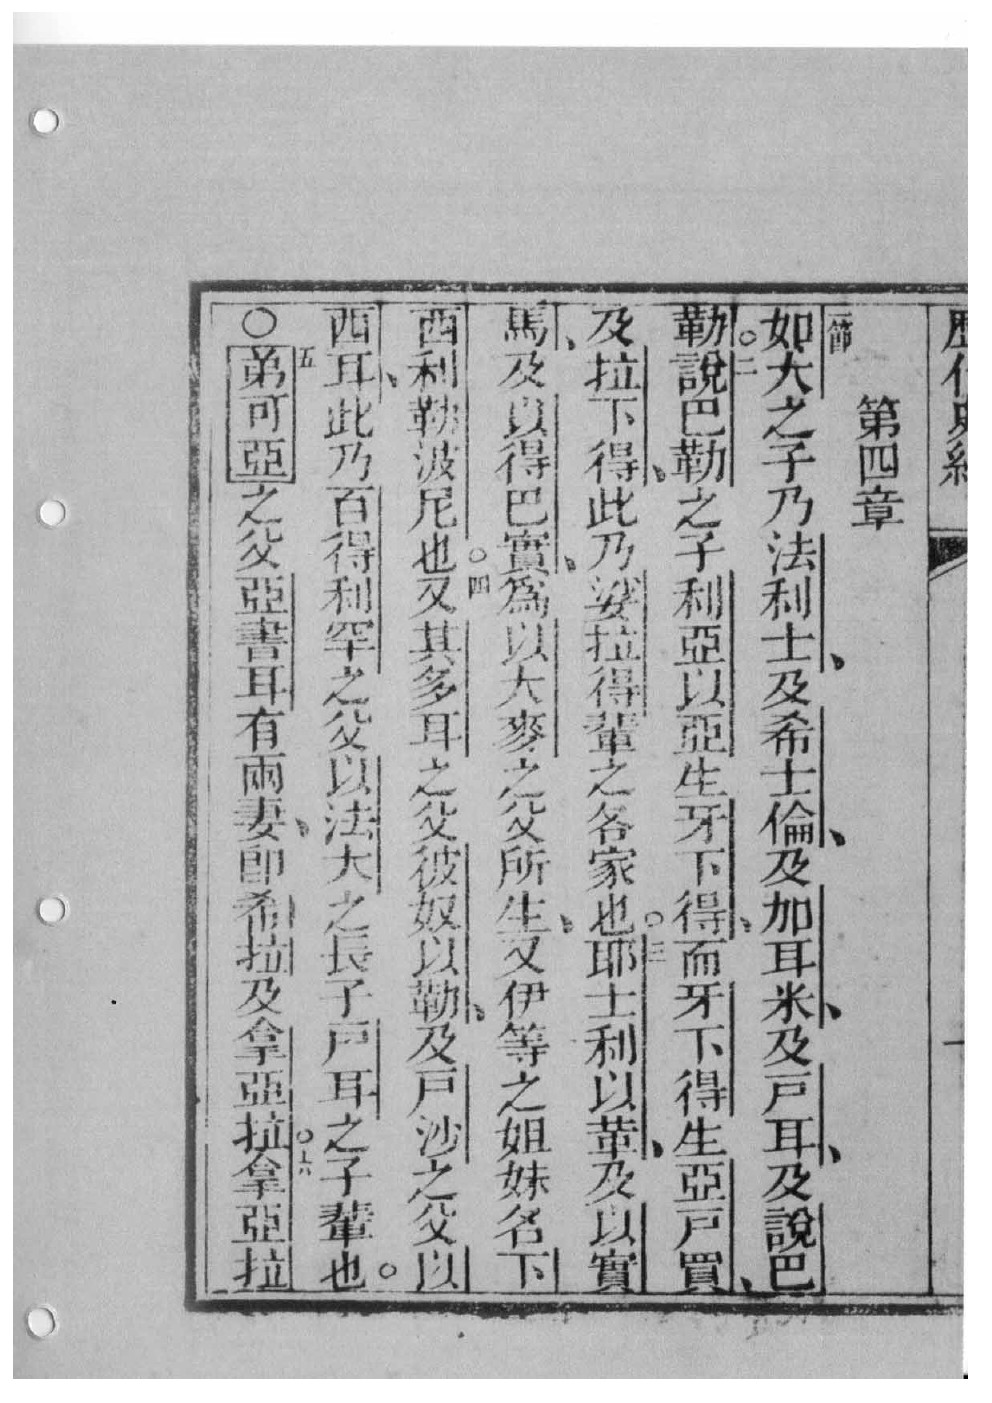 第四章
一節如大之子乃法利士、及希士倫、及加耳米、及戸耳、及說巴
勒。二說巴勒之子利亞以亞生牙下得、而牙下得生亞戸買、
及拉下得、此乃娑拉得輩之各家也。三耶士利以革、及以實
馬、及以得巴實、爲以大麥之父所生、又伊等之姐妹名下
西利勒波尼也。四又其多耳之父彼奴以勒、及戸沙之父以
西耳、此乃百得利罕之父以法大之長子戸耳之子輩也。
○五弟可亞之父亞書耳有兩妻、卽希拉及拿亞拉。六拿亞拉